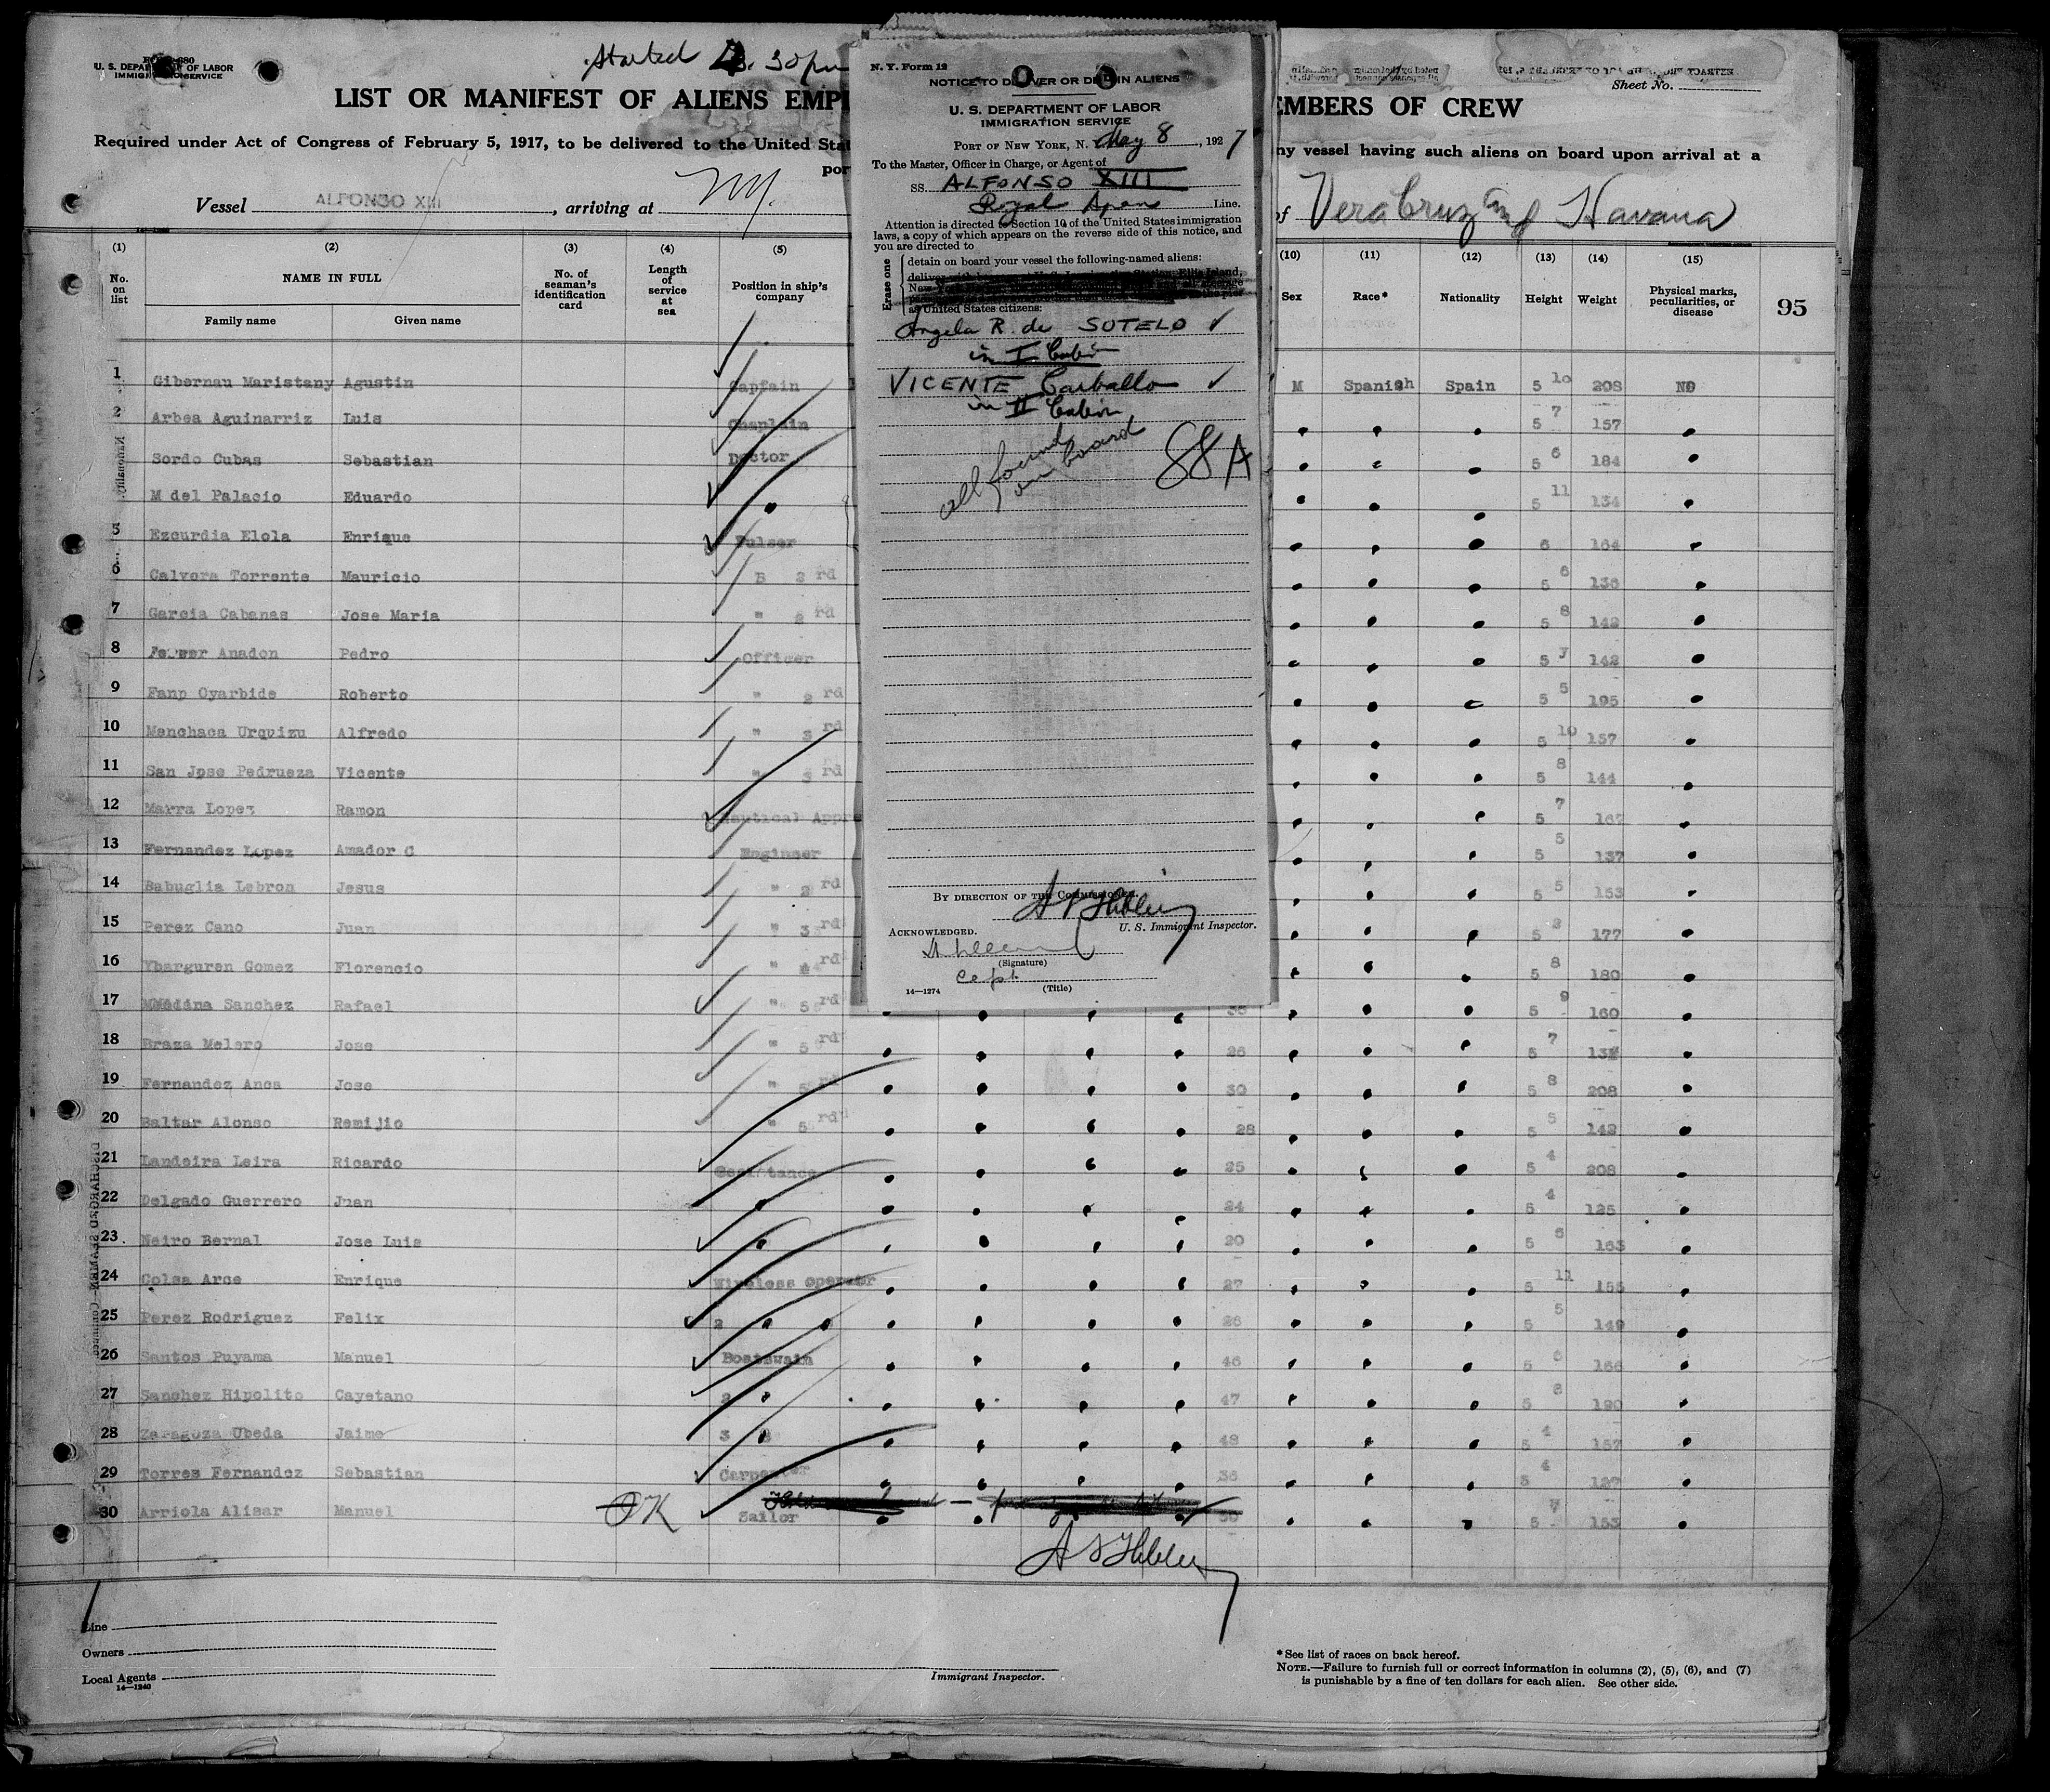 U. S. DEPARTMENT OF LABOR
IMMIGRATION SERVICE
Started 3.30 pm
LIST OR MANIFEST OF ALIENS EMPL
EMBERS OF CREW
Sheet No.
Required under Act of Congress of February 5, 1917, to be delivered to the United Stat
ny vessel having such aliens on board upon arrival at a
por
Vessel ALFONSO XIII, arriving at NY.
of Vera Cruz and Havana
N. Y. Form 12
NOTICE TO DELIVER OR DETAIN ALIENS
U. S. DEPARTMENT OF LABOR
IMMIGRATION SERVICE
PORT OF NEW YORK, N. May 8, 1927
To the Master, Officer in Charge, or Agent of
SS. ALFONSO XIII
Royal Span Line.
Attention is directed to Section 10 of the United States immigration
laws, a copy of which appears on the reverse side of this notice, and
you are directed to
Erase one
detain on board your vessel the following-named aliens:
as United States citizens:
Angela R. de SOTELO ✓
in I Cabin
VICENTE Carballo ✓
in II Cabin
all found
on board
88A
BY DIRECTION OF THE COMMISSIONER.
U. S. Immigrant Inspector.
ACKNOWLEDGED.
(Signature)
Capt.
(Title)
14—1274
(1) (2) (3) (4) (5) (10) (11) (12) (13) (14) (15)
No. on list
NAME IN FULL
Family name Given name
No. of seaman's identification card
Length of service at sea
Position in ship's company
Sex Race* Nationality Height Weight
Physical marks, peculiarities, or disease
95
1 Gibernau Maristany Agustin Captain M Spanish Spain 5 10 208 NO
2 Arbea Aguinarriz Luis Chaplain 5 7 157
Sordo Cubas Sebastian Doctor 5 6 184
M del Palacio Eduardo 5 11 134
5 Ezcurdia Elola Enrique 6 164
6 Calvera Torrente Mauricio 5 6 136
7 Garcia Cabanas Jose Maria " 5 8 142
8 Anadon Pedro Officer 5 7 142
9 Fanp Oyarbide Roberto " 2 rd 5 5 195
10 Menchaca Urquizu Alfredo " 3 rd 5 10 157
11 San Jose Pedrueza Vicente " 3 rd 5 8 144
12 Marra Lopez Ramon Nautical Appre 5 7
13 Fernandez Lopez Amador C Engineer 5 5 137
14 Babuglia Lebron Jesus " 2 rd 5 5 153
15 Perez Cano Juan " 3 rd 5 177
16 Ybarguren Gomez Florencio " 4 rd 5 8 180
17 Medina Sanchez Rafael " 5 rd 5 9 160
18 Braza Melero Jose " 5 rd 26 5 7
19 Fernandez Anca Jose " 5 30 5 8 208
20 Baltar Alonso Remijio " 5 rd 28 5 5 142
21 Landeira Leira Ricardo 25 5 4 208
22 Delgado Guerrero Juan 24 5 4 125
23 Neiro Bernal Jose Luis 20 5 163
24 Colsa Arce Enrique Wireless operator 27 5 11 155
25 Perez Rodriguez Felix 2 26 5 5 149
26 Santos Puyama Manuel Boatswain 46 5 166
27 Sanchez Hipolito Cayetano 2 47 5 190
28 Zaragoza Ubeda Jaime 3 48 5 4 157
29 Torres Fernandez Sebastian Carpenter 36 5 4 127
30 Arriola Alisar Manuel OK Sailor 5 153
Line
Owners
Local Agents
14—1240
Immigrant Inspector.
*See list of races on back hereof.
NOTE.—Failure to furnish full or correct information in columns (2), (5), (6), and (7)
is punishable by a fine of ten dollars for each alien. See other side.